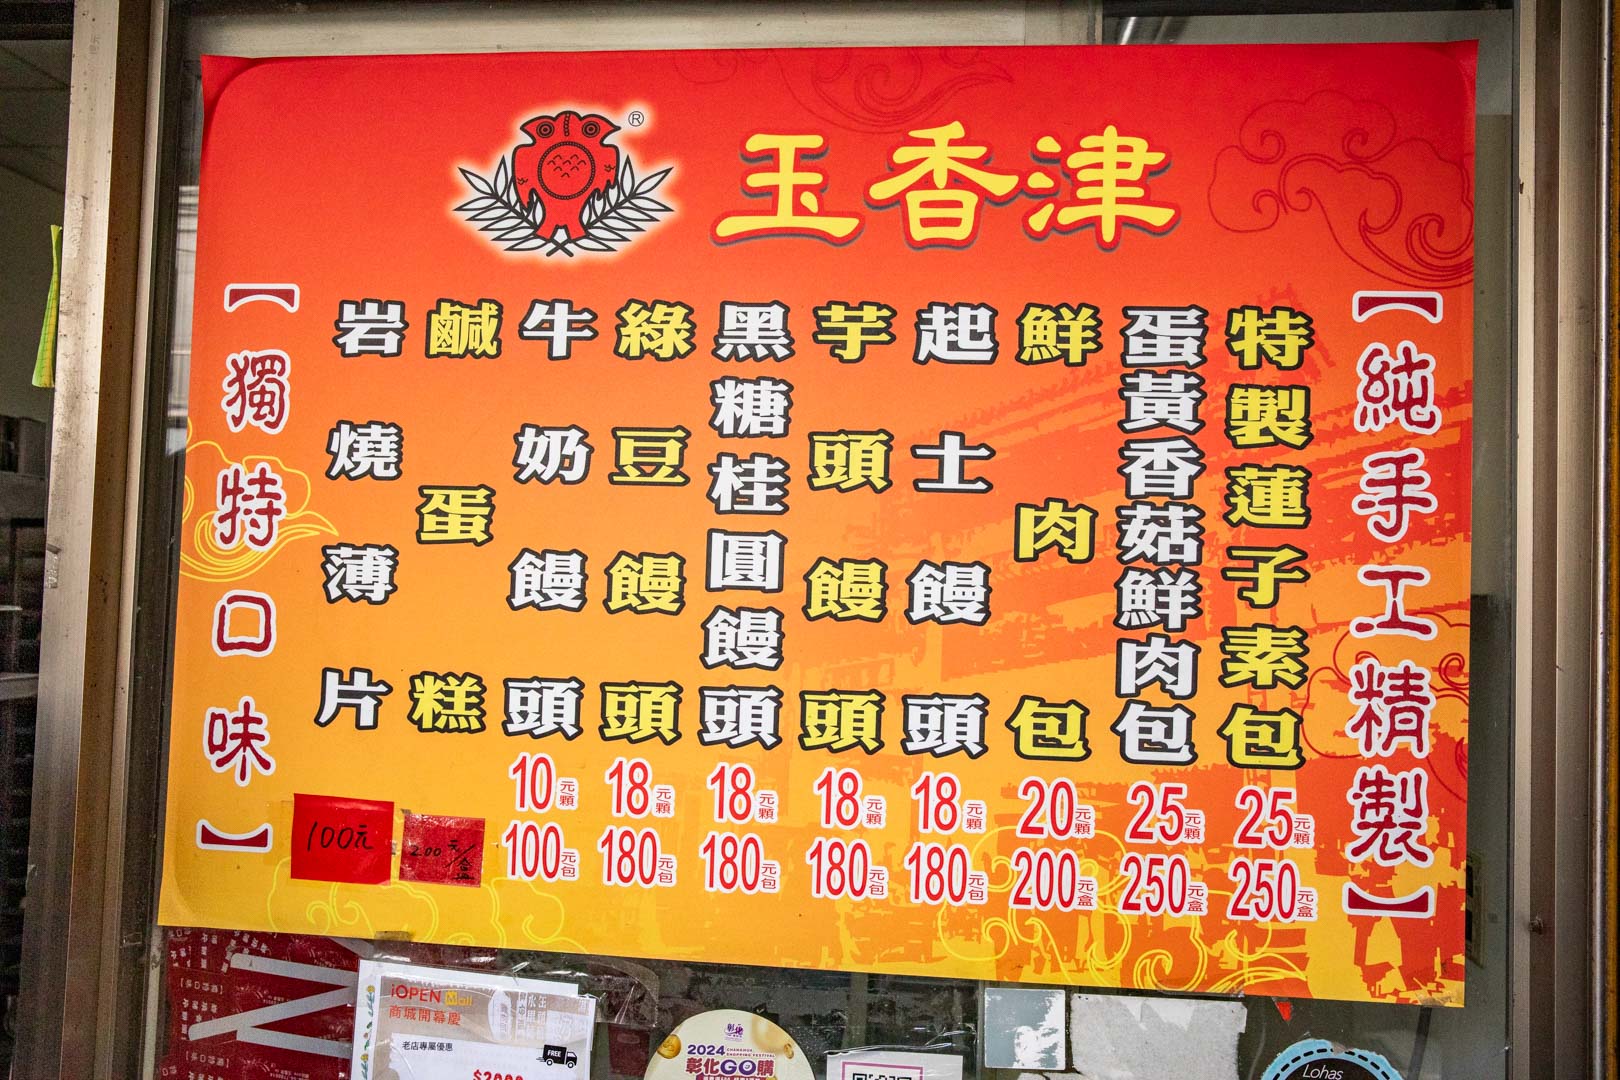 ®
玉香津
【純手工精製】
特製蓮子素包
25元顆
250元盒
蛋黃香菇鮮肉包
25元顆
250元盒
鮮肉包
20元顆
200元盒
起士饅頭
18元顆
180元包
芋頭饅頭
18元顆
180元包
黑糖桂圓饅頭
18元顆
180元包
綠豆饅頭
18元顆
180元包
牛奶饅頭
10元顆
100元包
鹹蛋糕
200元/盒
岩燒薄片
100元
【獨特口味】
iOPEN Mall
商城開幕慶
老店專屬優惠
FREE
2024
彰化GO購
Lohas